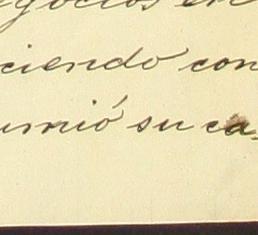 egocios en
ciendo con
umió su ca-